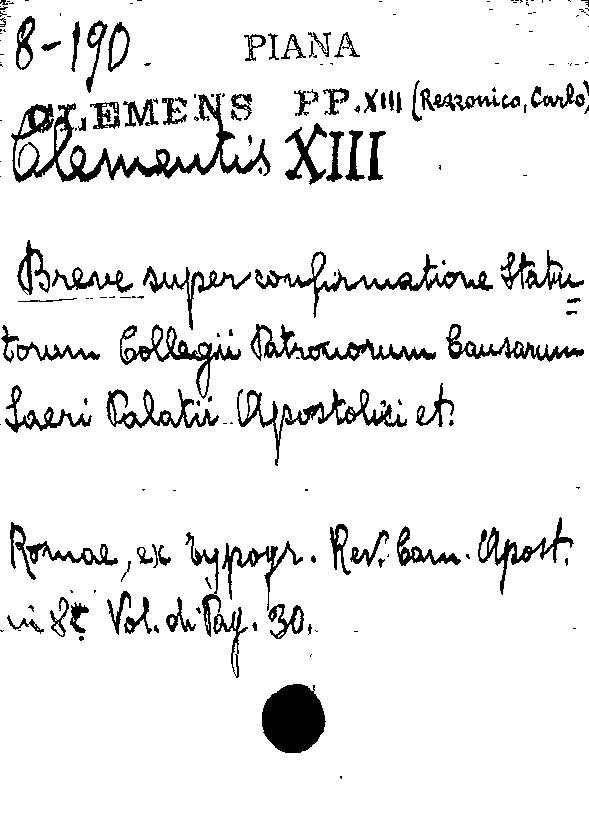 8-190.
PIANA
CLEMENS PP. XIII (Rezzonico, Carlo)
Clementis XIII
Breve super confirmatione Statu=
torum Collegii Patronorum Causarum
Sacri Palatii Apostolici et.
Romae, ex typogr. Rev. Cam. Apost.
in 8º Vol. di Pag. 30.